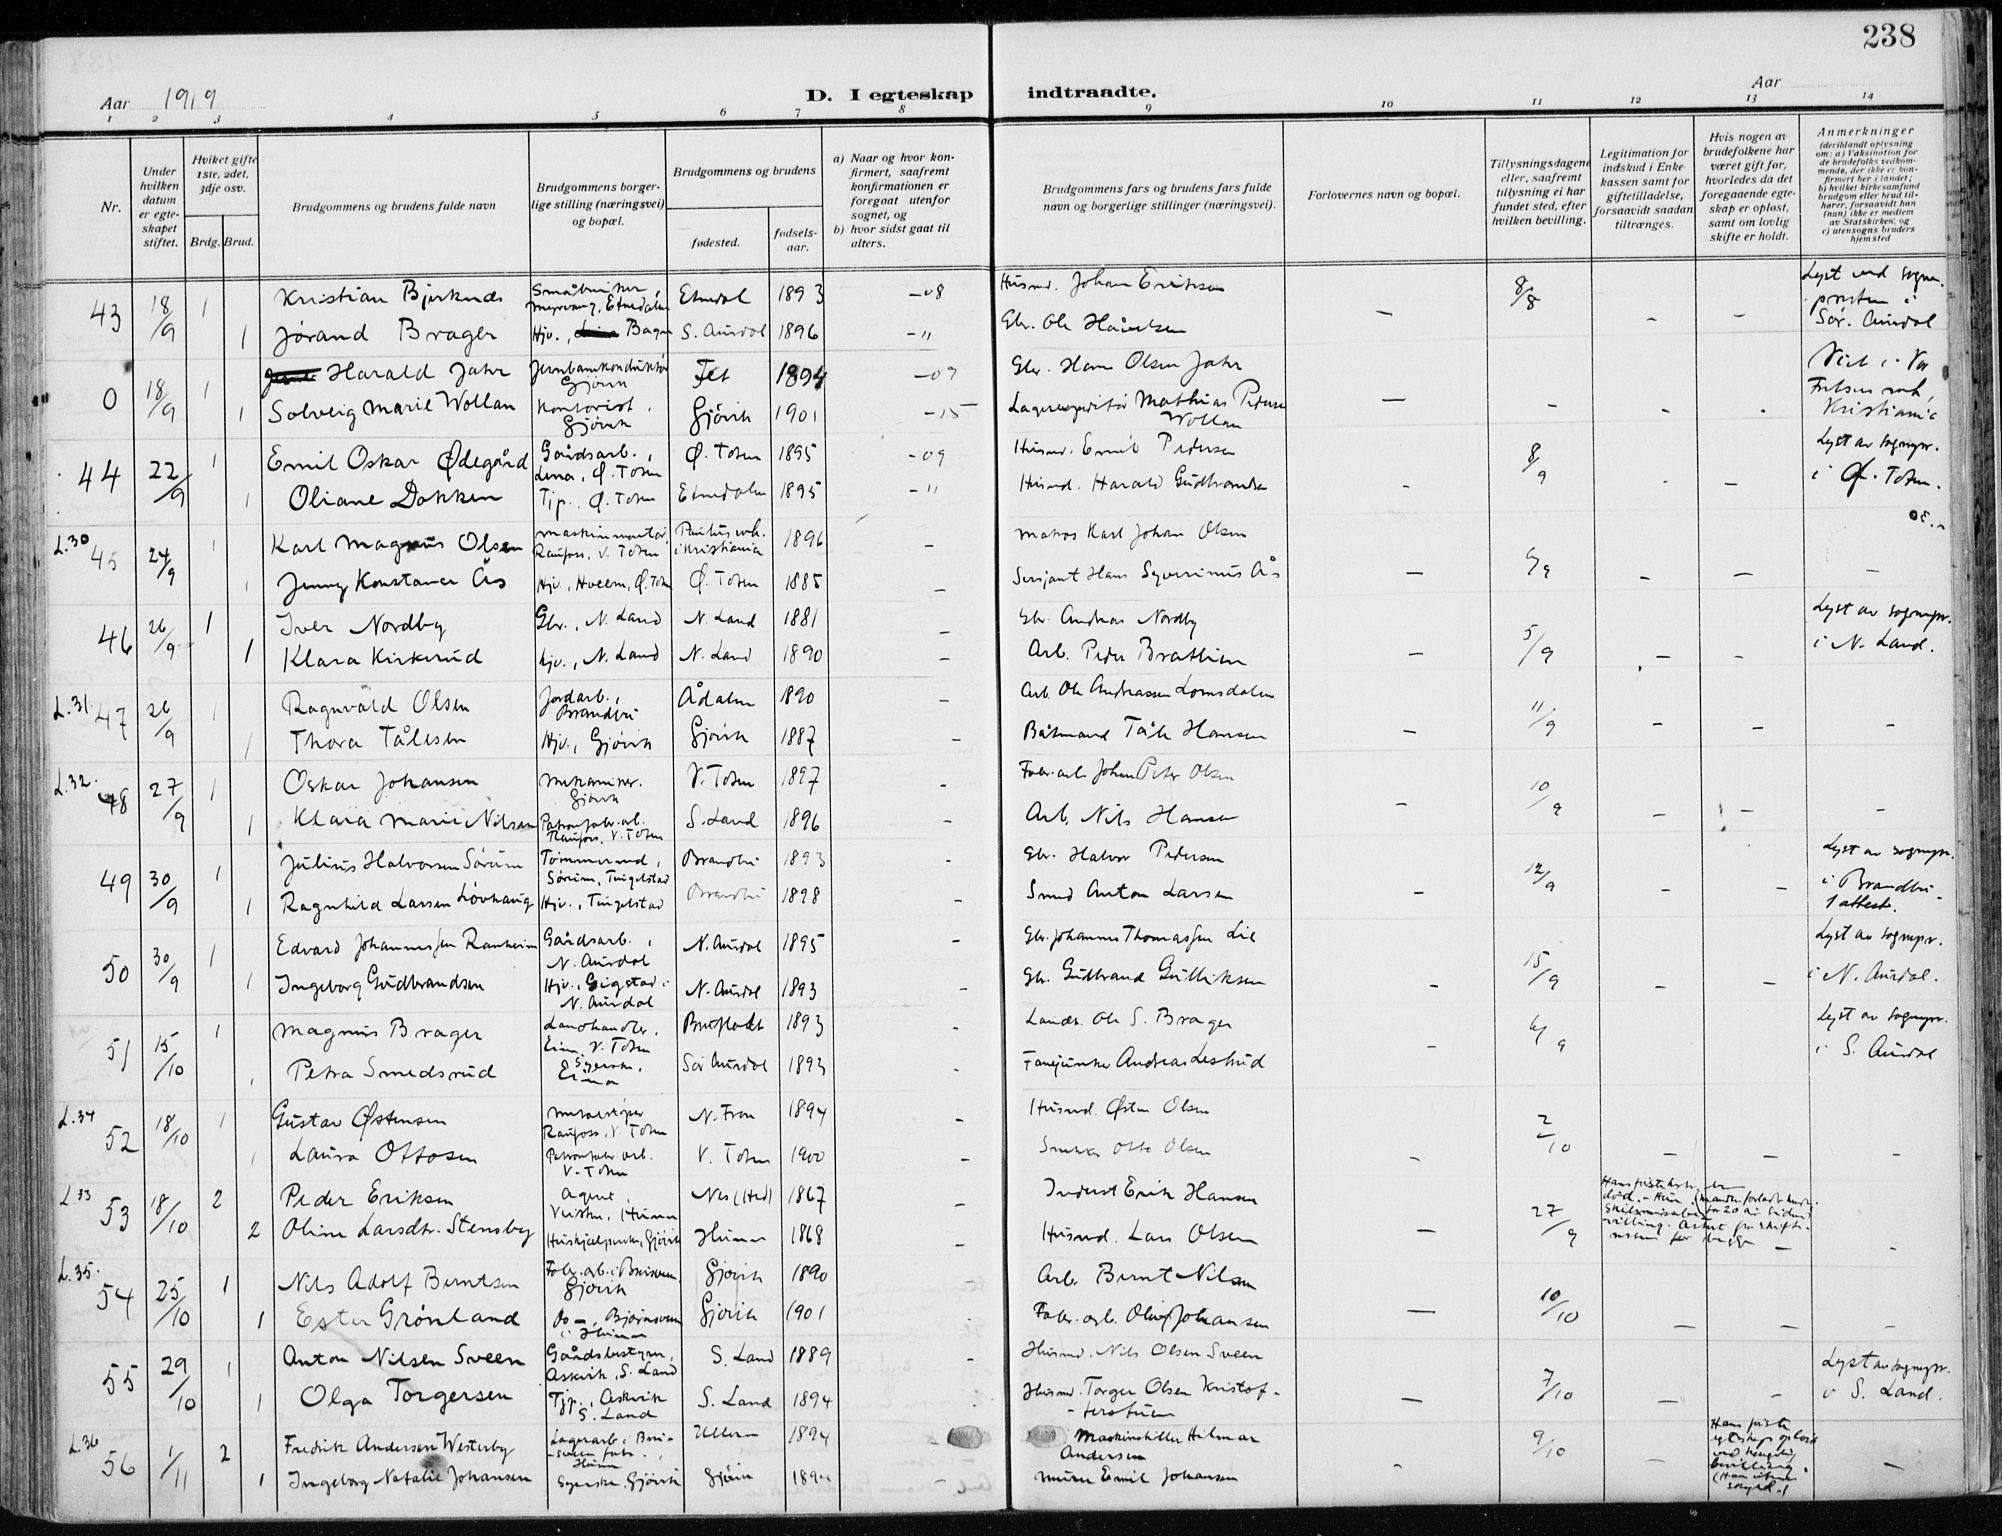 238
Aar 1919
D. I egteskap indtraadte.
Aar
1 2 3 4 5 6 7 8 9 10 11 12 13 14
Nr.
Under hvilken datum er egteskapet stiftet.
Hviket gifte 1ste, 2det, 3dje osv.
Brdg. Brud.
Brudgommens og brudens fulde navn
Brudgommens borgerlige stilling (næringsvei) og bopæl.
Brudgommens og brudens
fødested.
fødselsaar.
a) Naar og hvor konfirmert, saafremt konfirmationen er foregaat utenfor sognet, og
b) hvor sidst gaat til alters.
Brudgommens fars og brudens fars fulde navn og borgerlige stillinger (næringsvei).
Forlovernes navn og bopæl.
Tillysningsdagene eller, saafremt tillysning ei har fundet sted, efter hvilken bevilling.
Legitimation for indskud i Enkekassen samt for giftetilladelse, forsaavidt saadan tiltrænges.
Hvis nogen av brudefolkene har været gift før, hvorledes da det foregaaende egteskap er opløst, samt om lovlig skifte er holdt.
Anmerkninger (deriblandt oplysning om: a) Vaksination for de brudefolks vedkommende, der ikke er konfirmert her i landet; b) hvilket kirkesamfund brudgom eller brud tilhører, forsaavidt han (hun) ikke er medlem av Statskirken, og c) utensogns bruders hjemsted
43 18/9 1 Kristian Bjerknes Etnedal 1893 -08 Husmd. Johan Eriksen 8/8 Lyst ved sogneprsten i Sør. Aurdal
1 Jørand Brager Hjv., Bagn S. Aurdal 1896 -" Gbr. Ole Håvelsen
0 18/9 1 Harald Jahr Jernbanekonduktør Gjövik Fet 1894 -09 Gbr. Hans Olsen Jahr
1 Solveig Marie Wollan Kontorist, Gjövik Gjövik 1901 -15 Lagerexpeditör Mathias Pedersen Wollan Kristiania
44 22/9 1 Emil Oskar Ødegård Gårdsarb., Lena, Ø. Toten Ø. Toten 1895 -09 Husmd. Emil Pedersen 8/9 Lyst av sognepr. i Ø. Toten.
1 Oliane Dokken Tjp., Ø. Toten Etnedalen 1895 -" Husmd. Harald Gudbrandsen
L.30 45 24/9 1 Karl Magnus Olsen Maskinmontör, Raufoss, V. Toten i Kristiania 1896 Matros Karl Johan Olsen 6/9
1 Jenny Konstance Ås Hjv., Hveem, Ø. Toten Ø. Toten 1885 Sersjant Hans Syverinus Ås
46 26/9 1 Iver Nordby Gbr., N. Land N. Land 1881 Gbr. Andreas Nordby 5/9 Lyst av sognepr. i N. Land.
1 Klara Kirkerud Hjv., N. Land N. Land 1890 Arb. Peder Brathen
L.31. 47 26/9 1 Ragnvald Olsen Jordarb., Brandbu Ådalen 1890 Arb. Ole Andreassen Lomsdalen 11/9
1 Thora Tålesen Hjv., Gjövik Gjövik 1887 Båtmand Tåle Hansen
L.32. 48 27/9 1 Oskar Johansen Mekaniker. Gjövik V. Toten 1897 Fabr. arb. Johan Peter Olsen 10/9
1 Klara Marie Nilsen Patronfabr. arb. Raufoss, V. Toten S. Land 1896 Arb. Nils Hansen
49 30/9 1 Julius Halvorsen Sörum Tömmermd., Sörum, Tingelstad Brandbu 1893 Gbr. Halvor Pedersen 12/9 Lyst av sognepr. i Brandbu - 1 attest.
1 Ragnhild Larsen Lövhaug Hjv., Tingelstad Brandbu 1898 Smed Anton Larsen
50 30/9 1 Edvard Johannessen Ranheim Gårdsarb., N. Aurdal N. Aurdal 1895 Gbr. Johannes Thomassen Lie 15/9 Lyst av sognepr. i N. Aurdal.
1 Ingeborg Gudbrandsen Hjv., Gigstad i N. Aurdal N. Aurdal 1893 Gbr. Gudbrand Gulliksen
51 15/10 1 Magnus Brager Landhandler, Eina, V. Toten Bruflodt 1893 Landh. Ole S. Brager 6/9 Lyst av sognepr. i S. Aurdal
1 Petra Smedsrud Syerske, Eina Sör Aurdal 1893 Fanejunker Andreas Leskrud
L.34 52 18/10 1 Gustav Østensen Metalstöper Raufoss, V. Toten N. Fron 1894 Husmd. Østen Olsen 2/10
1 Laura Ottosen Patronfabr. arb. V. Toten V. Toten 1900 Snekker Otto Olsen
L.33 53 18/10 2 Peder Eriksen Agent, Nes (Hed) 1867 Inderst Erik Hansen 27/9
2 Oline Larsdtr. Stensby Gjövik 1868 Husmd. Lars Olsen
L.35. 54 25/10 1 Nils Adolf Berntsen Gjövik Gjövik 1890 Arb. Bernt Nilsen 10/10
1 Ester Grönland Do -, Gjövik 1901 Fabr. arb. Oluf Johansen
55 29/10 1 Anton Nilsen Sveen Gårdsbestyrer, Askvik, S. Land S. Land 1889 Husmd. Nils Olsen Sveen 7/10 Lyst av sognepr. i S. Land.
1 Olga Torgersen Tjp., Askvik S. Land S. Land 1894 Husmd. Torger Olsen Kristofferstuen
L.36 56 1/11 2 Fredrik Andersen Westerby Ullern 1894 Maskinstiller Hilmar Andersen 9/10
1 Ingeborg Natalie Johansen Syerske, Gjövik Gjövik Murer Emil Johansen